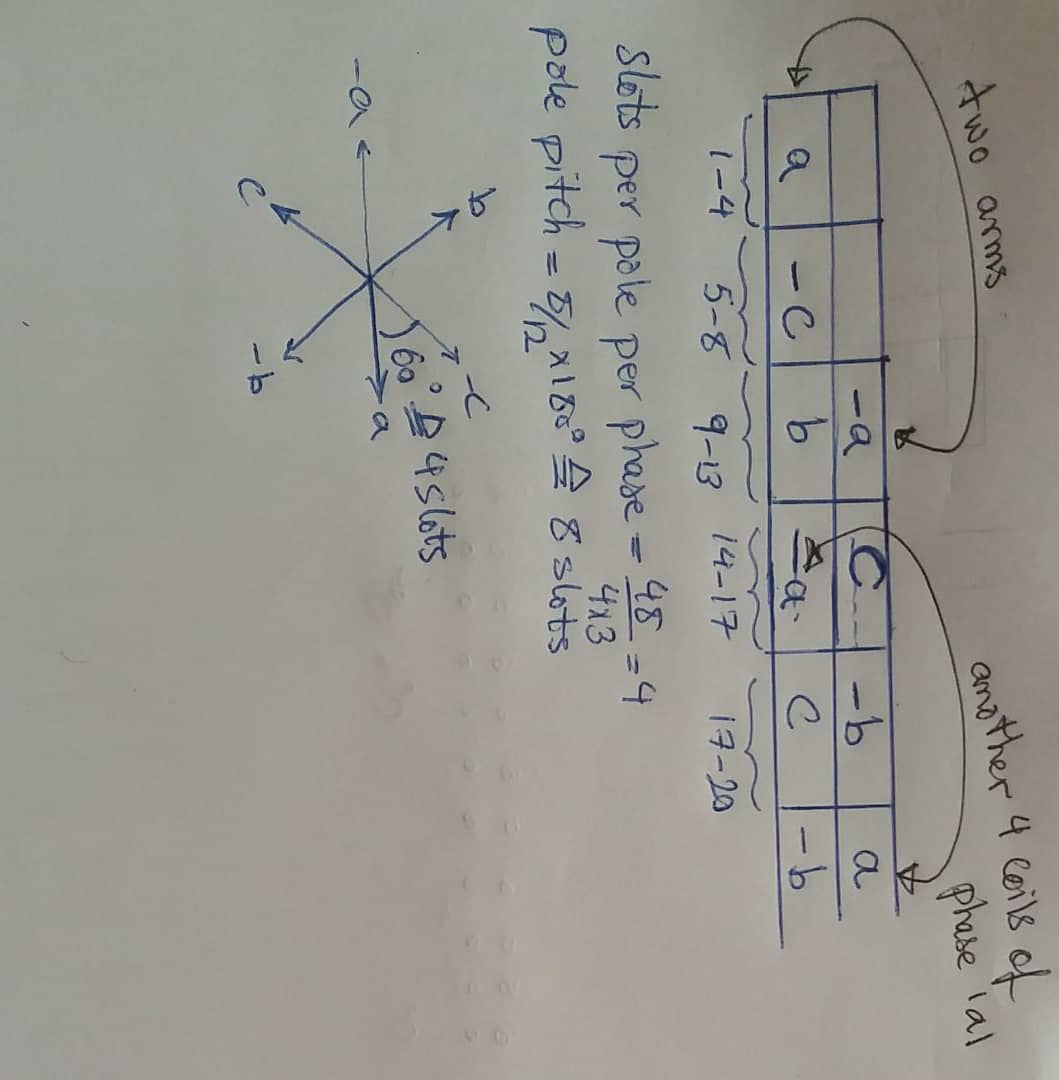 two arms
another 4 coils of
phase 'a'
-a C -b a
a -c b -a c -b
1-4 5-8 9-13 14-17 17-20
slots per pole per phase = 48/4x3 = 4
pole pitch = 8/12 x180° ≙ 8 slots
b -c
60° ≙ 4 slots
-a a
c -b